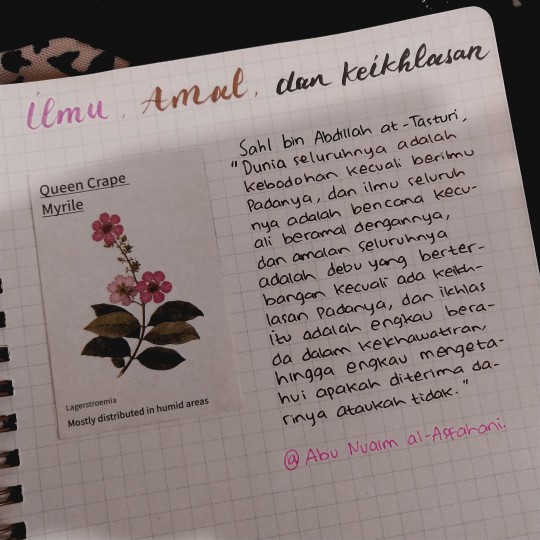 Ilmu, Amal, dan keikhlasan
Queen Crape
Myrile
Lagerstroemia
Mostly distributed in humid areas
Sahl bin Abdillah at-Tasturi,
"Dunia seluruhnya adalah
kebodohan kecuali berilmu
padanya, dan ilmu seluruh
nya adalah bencana kecu-
ali beramal dengannya,
dan amalan seluruhnya
adalah debu yang berter-
bangan kecuali ada keikh-
lasan padanya, dan ikhlas
itu adalah engkau bera-
da dalam kekhawatiran,
hingga engkau mengeta-
hui apakah diterima da-
rinya ataukah tidak."
@ Abu Nuaim al-Asfahani.